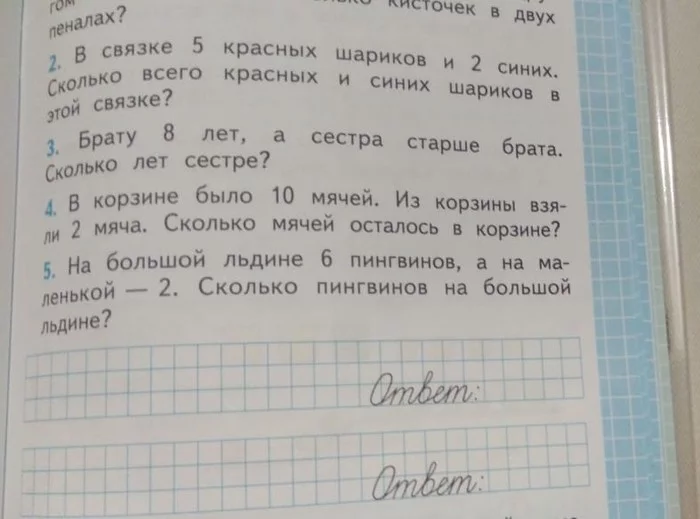 кисточек в двух
пеналах?
2. В связке 5 красных шариков и 2 синих.
Сколько всего красных и синих шариков в
этой связке?
3. Брату 8 лет, а сестра старше брата.
Сколько лет сестре?
4. В корзине было 10 мячей. Из корзины взя-
ли 2 мяча. Сколько мячей осталось в корзине?
5. На большой льдине 6 пингвинов, а на ма-
ленькой — 2. Сколько пингвинов на большой
льдине?
Ответ:
Ответ: